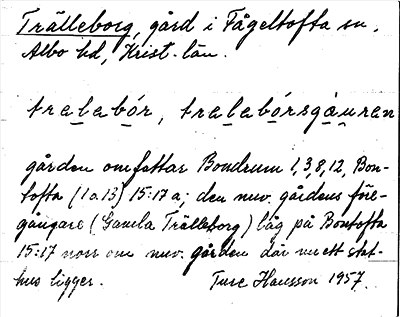 Trälleborg, gård i Fågeltofta sn.
Albo hd, Krist. län.
tralabór, tralabórsgáuren
gården omfattar Bondrum 1,3,8,12, Bon-
tofta (1 o 13) 15:17 a; den nuv. gårdens före-
gångare (Gamla Trälleborg) låg på Bontofta
15:17 norr om nuv. gården där nu ett stat-
hus ligger. Ture Hansson 1957.